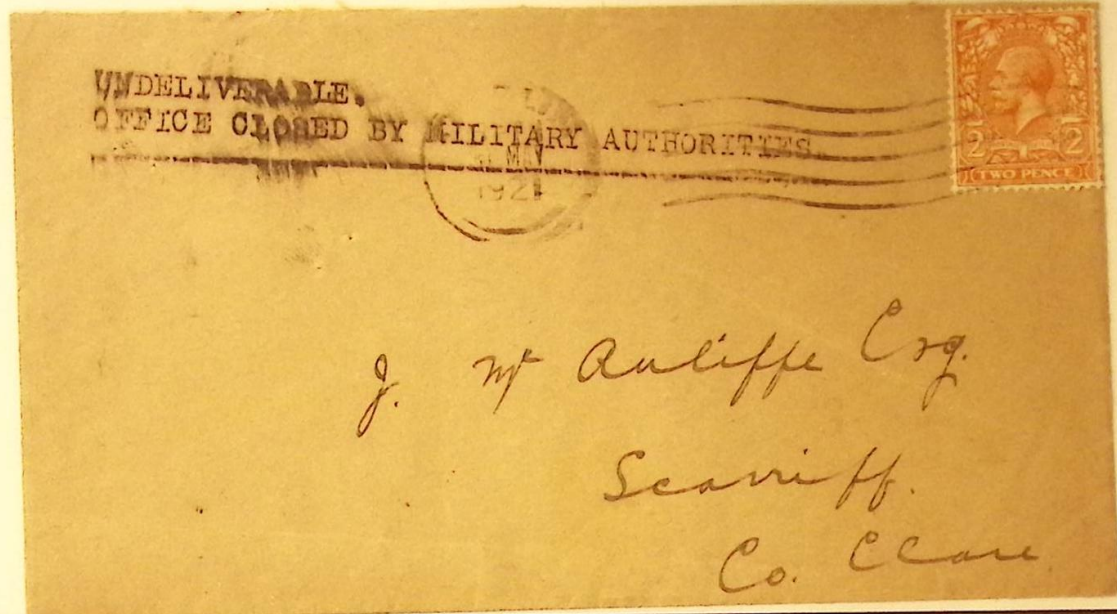 UNDELIVERABLE.
OFFICE CLOSED BY MILITARY AUTHORITIES.
MY
1921
2 2
TWO PENCE
J. Mc Auliffe Esq.
Scarriff.
Co. Clare